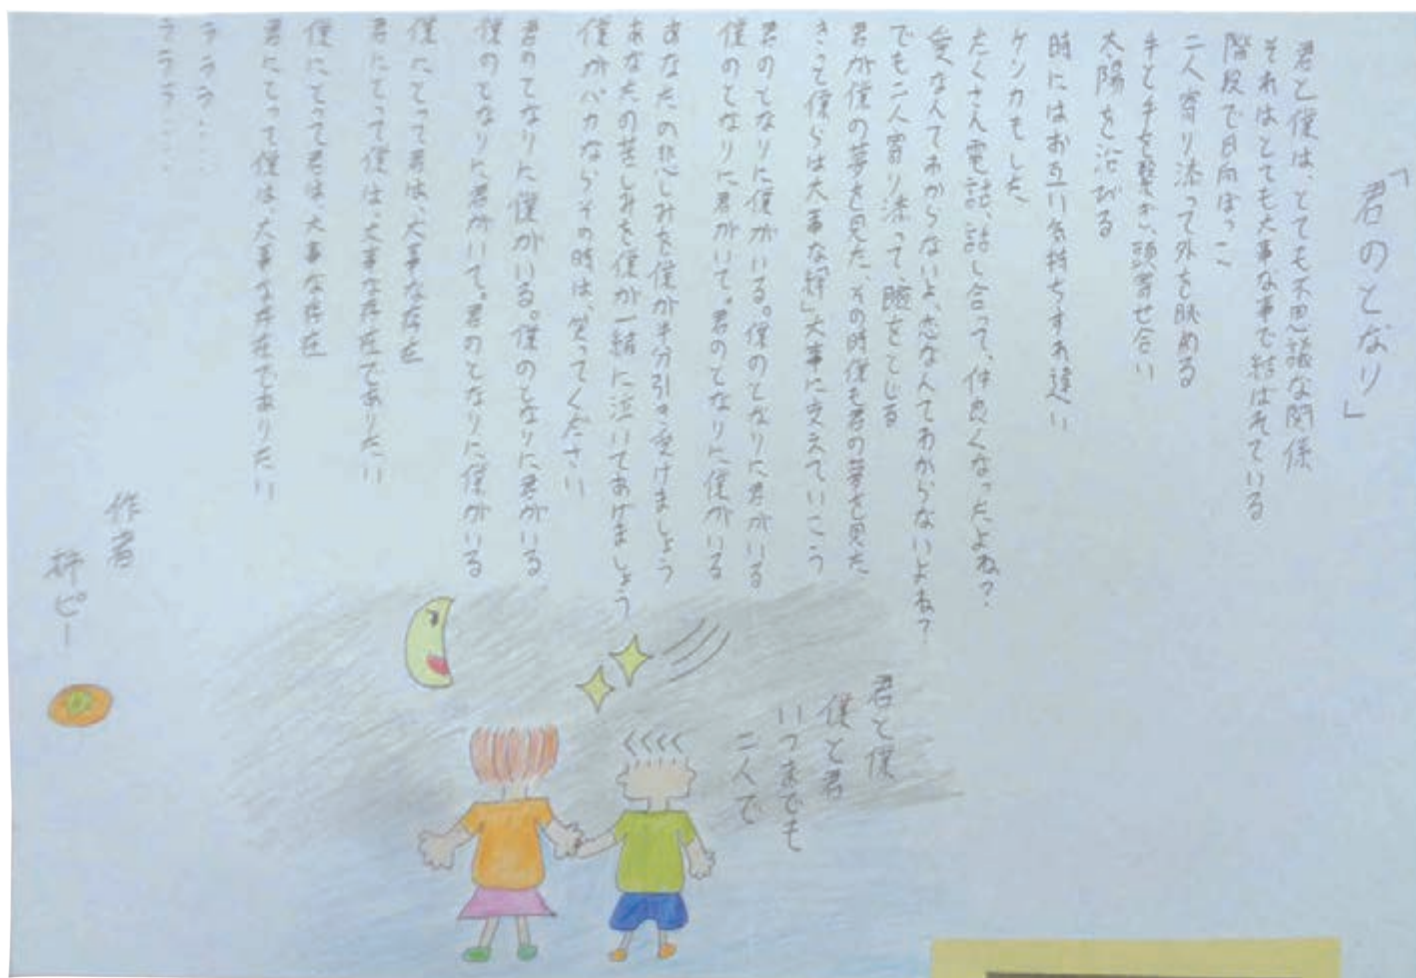 「君のとなり」
君と僕は、とても不思議な関係
それはとても大事な事で結ばれている
階段で日向ぼっこ
二人寄り添って外を眺める
手と手を繋ぎ、頭寄せ合い
太陽を浴びる
時にはお互い気持ちすれ違い
ケンカもした
たくさん電話、話し合って、仲良くなったよね?
愛なんてわからないよ、恋なんてわからないよね?
でも二人寄り添って、瞳をとじる
君が僕の夢を見た、その時僕も君の夢を見た
きっと僕らは大事な「絆」大事に支えていこう
君のとなりに僕がいる。僕のとなりに君がいる
僕のとなりに君がいて。君のとなりに僕がいる
あなたの悲しみを僕が半分引き受けましょう
あなたの苦しみを僕が一緒に泣いてあげましょう
僕がバカならその時は、笑ってください
君のとなりに僕がいる。僕のとなりに君がいる。
僕のとなりに君がいて。君のとなりに僕がいる
僕にとって君は、大事な存在
君にとって僕は、大事な存在でありたい
僕にとって君は、大事な存在
君にとって僕は、大事な存在でありたい
ラララ・・・・
ラララ・・・・
作者
柿ピー
君と僕
僕と君
いつまでも
二人で